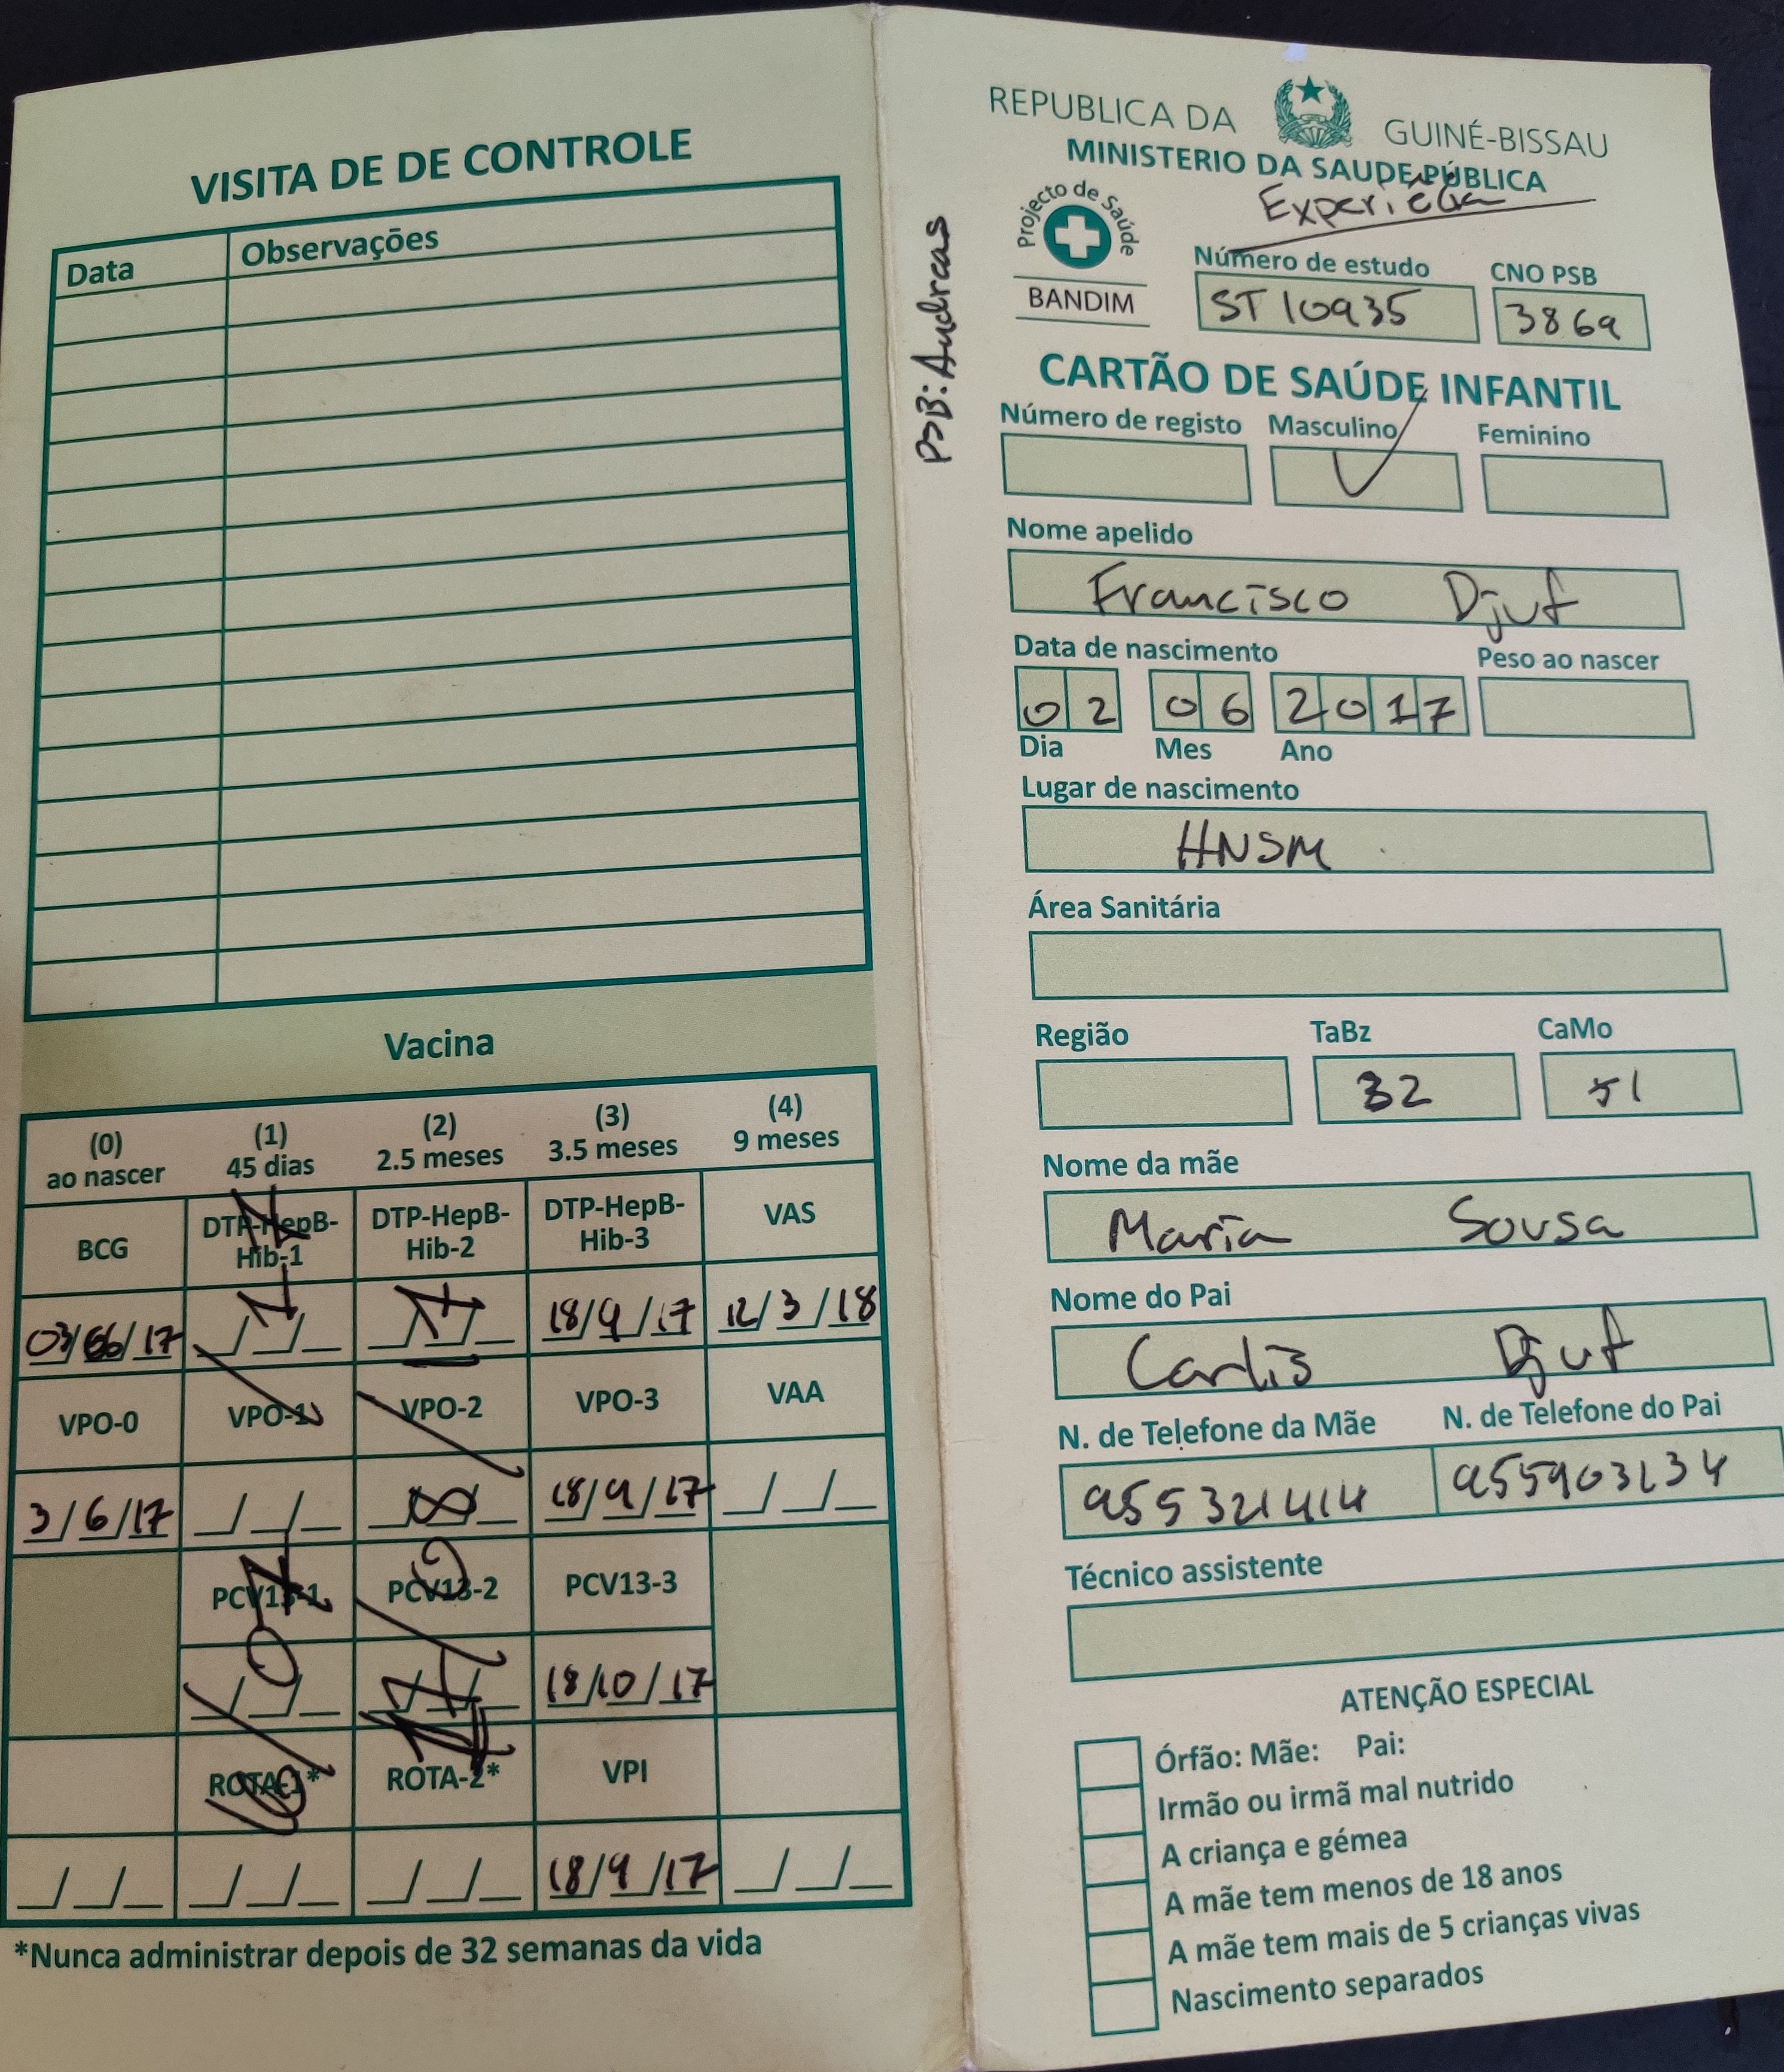 VISITA DE DE CONTROLE
Data Observações
Vacina
(0) ao nascer (1) 45 dias (2) 2.5 meses (3) 3.5 meses (4) 9 meses
BCG DTP-HepB-Hib-1 DTP-HepB-Hib-2 DTP-HepB-Hib-3 VAS
03/06/17 _/_/_ _/_/_ 18/9/17 12/3/18
VPO-0 VPO-1 VPO-2 VPO-3 VAA
3/6/17 _/_/_ _/_/_ 18/9/17 _/_/_
PCV13-1 PCV13-2 PCV13-3
_/_/_ _/_/_ 18/10/17
ROTA-1* ROTA-2* VPI
_/_/_ _/_/_ _/_/_ 18/9/17 _/_/_
*Nunca administrar depois de 32 semanas da vida
PSB: Andreas
REPUBLICA DA GUINÉ-BISSAU
MINISTERIO DA SAUDE PÚBLICA
Projecto de Saúde
BANDIM
Número de estudo CNO PSB
ST10935 3869
CARTÃO DE SAÚDE INFANTIL
Número de registo Masculino Feminino
Nome apelido
Francisco Djuf
Data de nascimento Peso ao nascer
02 06 2017
Dia Mes Ano
Lugar de nascimento
HNSM
Área Sanitária
Região TaBz CaMo
32 51
Nome da mãe
Maria Sousa
Nome do Pai
Carlis Djuf
N. de Telefone da Mãe N. de Telefone do Pai
955321414 955903134
Técnico assistente
ATENÇÃO ESPECIAL
Órfão: Mãe: Pai:
Irmão ou irmã mal nutrido
A criança e gémea
A mãe tem menos de 18 anos
A mãe tem mais de 5 crianças vivas
Nascimento separados